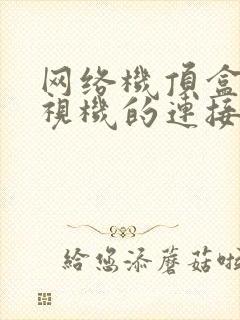 网络機頂盒
視機的連接
給您添蘑菇啦